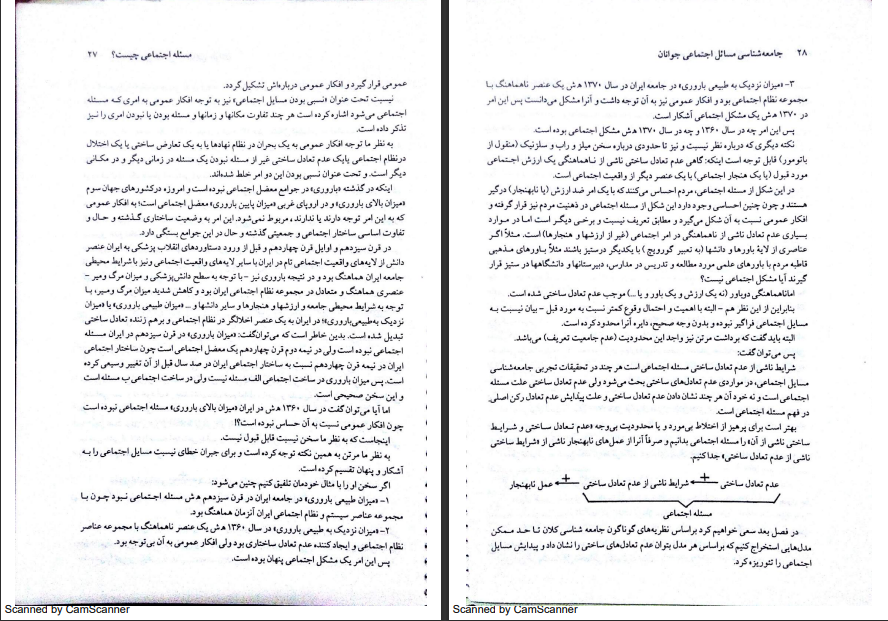 مسئله اجتماعی چیست؟ ۲۷
عمومی قرار گیرد و افکار عمومی درباره‌اش تشکیل گردد.
نیسبت تحت عنوان «نسبی بودن مسایل اجتماعی» نیز به توجه افکار عمومی به امری که مسئله
اجتماعی می‌شود اشاره کرده است هر چند تفاوت مکانها و زمانها و مسئله بودن یا نبودن امری را نیز
تذکر داده است.
به نظر ما توجه افکار عمومی به یک بحران در نظام نهادها یا به یک تعارض ساختی یا یک اختلال
در نظام اجتماعی یا یک عدم تعادل ساختی غیر از مسئله نبودن یک مسئله در زمانی دیگر و در مکانی
دیگر است. و تحت عنوان نسبی بودن این دو امر خلط شده‌اند.
اینکه در گذشته «باروری» در جوامع معضل اجتماعی نبوده است و امروزه درکشورهای جهان سوم
«میزان بالای باروری» و در اروپای غربی «میزان پایین باروری» معضل اجتماعی است؛ به افکار عمومی
که به این امر توجه دارند یا ندارند، مربوط نمی‌شود. این امر به وضعیت ساختاری گذشته و حال و
تفاوت اساسی ساختار اجتماعی و جمعیتی گذشته و حال در این جوامع بستگی دارد.
در قرن سیزدهم و اوایل قرن چهاردهم و قبل از ورود دستاوردهای انقلاب پزشکی به ایران عنصر
دانش از لایه‌های واقعیت اجتماعی تام در ایران با سایر لایه‌های واقعیت اجتماعی ونیز با شرایط محیطی
جامعه ایران هماهنگ بود و در نتیجه باروری نیز - با توجه به سطح دانش‌پزشکی و میزان مرگ ومیر -
عنصری هماهنگ و متعادل در مجموعه نظام اجتماعی ایران بود و کاهش شدید میزان مرگ ومیر، با
توجه به شرایط محیطی جامعه و ارزشها و هنجارها و سایر دانشها و ... «میزان طبیعی باروری» یا «میزان
نزدیک به‌طبیعی‌باروری» در ایران به یک عنصر اخلالگر در نظام اجتماعی و برهم زننده تعادل ساختی
تبدیل شده است. بدین خاطر است که می‌توان‌گفت: «میزان باروری» در قرن سیزدهم در ایران مسئله
اجتماعی نبوده است ولی در نیمه دوم قرن چهاردهم یک معضل اجتماعی است چون ساختار اجتماعی
ایران در نیمه قرن چهاردهم نسبت به ساختار اجتماعی ایران در صد سال قبل از آن تغییر وسیعی کرده
است. پس میزان باروری در ساخت اجتماعی الف مسئله نیست ولی در ساخت اجتماعی ب مسئله است
و این سخن صحیحی است.
اما آیا می‌توان گفت در سال ۱۳۶۰ ه‍ ش در ایران «میزان بالای باروری» مسئله اجتماعی نبوده است
چون افکار عمومی نسبت به آن حساس نبوده است؟!
اینجاست که به نظر ما سخن نیسبت قابل قبول نیست.
به نظر ما مرتن به همین نکته توجه کرده است و برای جبران خطای نیسبت مسایل اجتماعی را به
آشکار و پنهان تقسیم کرده است.
اگر سخن او را با مثال خودمان تلفیق کنیم چنین می‌شود:
۱- «میزان طبیعی باروری» در جامعه ایران در قرن سیزدهم ه‍ ش مسئله اجتماعی نبود چون با
مجموعه عناصر سیستم و نظام اجتماعی ایران آنزمان هماهنگ بود.
۲- «میزان نزدیک به طبیعی باروری» در سال ۱۳۶۰ ه‍ ش یک عنصر ناهماهنگ با مجموعه عناصر
نظام اجتماعی و ایجاد کننده عدم تعادل ساختاری بود ولی افکار عمومی به آن بی‌توجه بود.
پس این امر یک مشکل اجتماعی پنهان بوده است.
Scanned by CamScanner
۲۸ جامعه‌شناسی مسائل اجتماعی جوانان
۳- «میزان نزدیک به طبیعی باروری» در جامعه ایران در سال ۱۳۷۰ ه‍ ش یک عنصر ناهماهنگ با
مجموعه نظام اجتماعی بود و افکار عمومی نیز به آن توجه داشت و آنرا مشکل می‌دانست پس این امر
در ۱۳۷۰ ه‍ ش یک مشکل اجتماعی آشکار است.
پس این امر چه در سال ۱۳۶۰ و چه در سال ۱۳۷۰ ه‍ ش مشکل اجتماعی بوده است.
نکته دیگری که درباره نظر نیسبت و نیز تا حدودی درباره سخن میلز و راب و سلزنیک (منقول از
باتومور) قابل توجه است اینکه: گاهی عدم تعادل ساختی ناشی از ناهماهنگی یک ارزش اجتماعی
مورد قبول (یا یک هنجار اجتماعی) با یک عنصر دیگر از واقعیت اجتماعی است.
در این شکل از مسئله اجتماعی، مردم احساس می‌کنند که با یک امر ضد ارزش (یا نابهنجار) درگیر
هستند و چون چنین احساسی وجود دارد این شکل از مسئله اجتماعی در ذهنیت مردم نیز قرار گرفته و
افکار عمومی نسبت به آن شکل می‌گیرد و مطابق تعریف نیسبت و برخی دیگر است اما در موارد
بسیاری عدم تعادل ناشی از ناهماهنگی در امر اجتماعی (غیر از ارزشها و هنجارها) است. مثلاً اگر
عناصری از لایهٔ باورها و دانشها (به تعبیر گورویچ) با یکدیگر درستیز باشند مثلاً باورهای مذهبی
قاطبه مردم با باورهای علمی مورد مطالعه و تدریس در مدارس، دبیرستانها و دانشگاهها در ستیز قرار
گیرند آیا مشکل اجتماعی نیست؟
اما ناهماهنگی دو باور (نه یک ارزش و یک باور و یا ...) موجب عدم تعادل ساختی شده است.
بنابراین از این نظر هم - البته با اهمیت و احتمال وقوع کمتر نسبت به مورد قبل - بیان نیسبت به
مسایل اجتماعی فراگیر نبوده و بدون وجه صحیح، دایره آنرا محدود کرده است.
البته باید گفت که برداشت مرتن نیز واجد این محدودیت (عدم جامعیت تعریف) می‌باشد.
پس می‌توان گفت:
شرایط ناشی از عدم تعادل ساختی مسئله اجتماعی است هر چند در تحقیقات تجربی جامعه‌شناسی
مسایل اجتماعی، در مواردی عدم تعادل‌های ساختی بحث می‌شود ولی عدم تعادل ساختی علت مسئله
اجتماعی است و نه خود آن هر چند نشان دادن عدم تعادل ساختی و علت پیدایش عدم تعادل رکن اصلی
در فهم مسئله اجتماعی است.
بهتر است برای پرهیز از اختلاط بی‌مورد و یا محدودیت بی‌وجه «عدم تعادل ساختی و شرایط
ساختی ناشی از آن» را مسئله اجتماعی بدانیم و صرفاً آنرا از عمل‌های نابهنجار ناشی از «شرایط ساختی
ناشی از عدم تعادل ساختی» جدا کنیم.
عدم تعادل ساختی + شرایط ناشی از عدم تعادل ساختی + عمل نابهنجار
مسئله اجتماعی
در فصل بعد سعی خواهیم کرد براساس نظریه‌های گوناگون جامعه شناسی کلان تا حد ممکن
مدل‌هایی استخراج کنیم که براساس هر مدل بتوان عدم تعادل‌های ساختی را نشان داد و پیدایش مسایل
اجتماعی را تئوریزه کرد.
Scanned by CamScanner